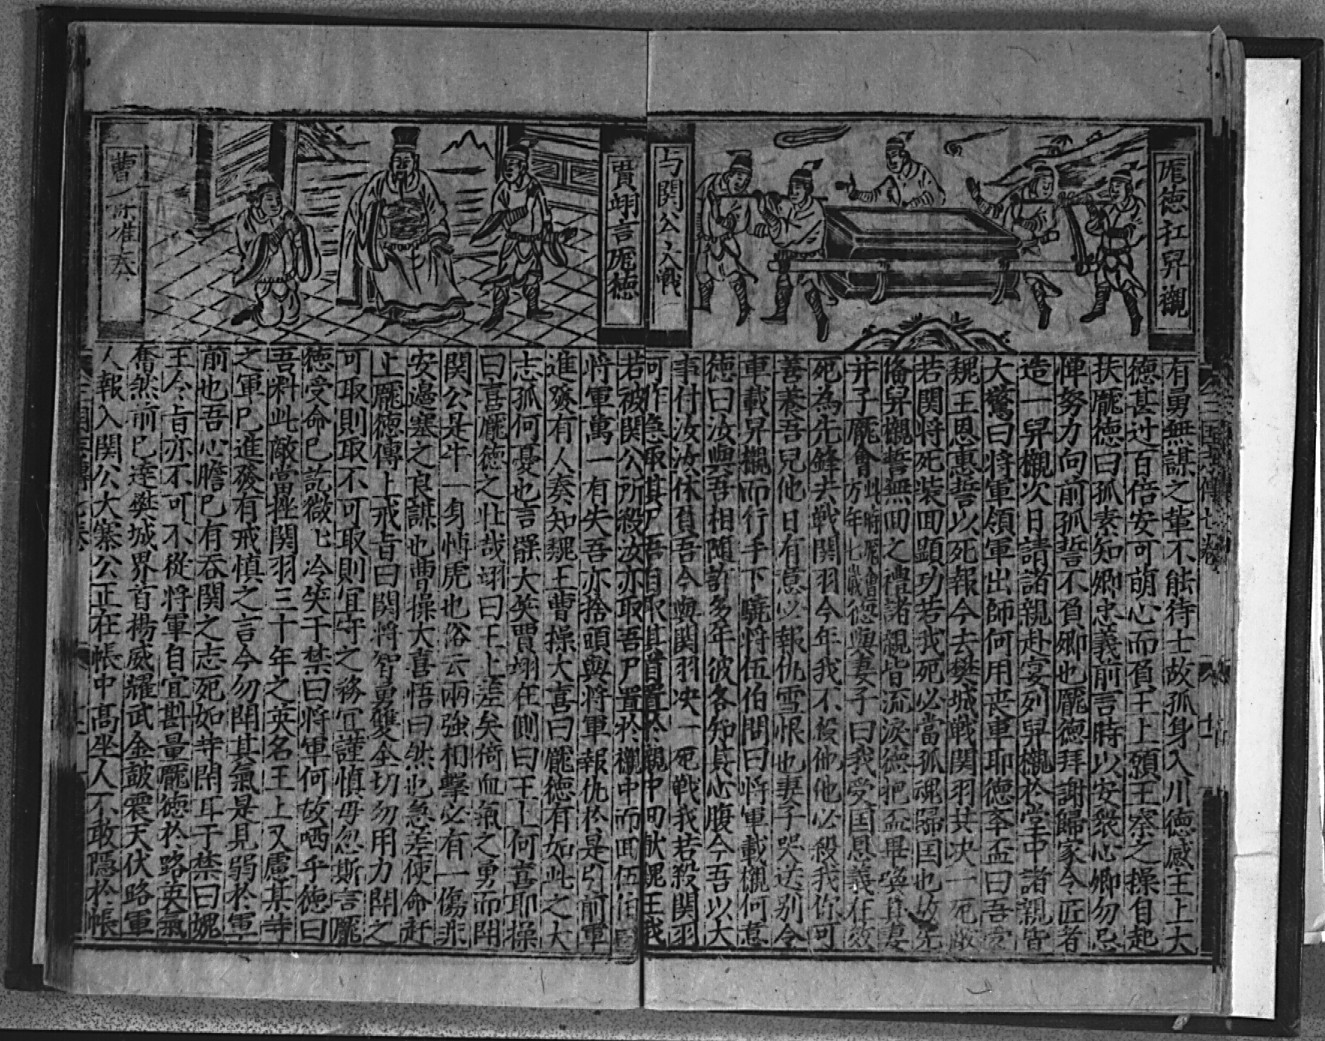 厖徳扛舁櫬
与関公大戰
有勇無謀之輩不能待士故孤身入川徳感王上大
徳甚过百倍安可萌心而負王上頋王察之操自起
扶龐徳曰孤素知卿忠義前言時以安衆心卿勿忌
惲努力向前孤誓不負卿也龎徳拜謝歸家令匠者
造一舁櫬次日請諸親赴宴列舁櫬於堂中諸親皆
大驚曰将軍領軍出師何用丧車耶徳举盃曰吾受
魏王恩惠誓以死報今去樊城戦関羽共决一死敵
若関将死装囬顕功若我死必當孤魂歸国也故先
俻舁櫬誓無囬之禮諸親皆流淚徳把盃畢喚其妻
并子龎會出方年七歲徳與妻子曰我受国恩義在效
死為先鋒去戦関羽今年我不殺他他必殺我你可
善養吾兒他日有意必報仇雪恨也妻子哭送别令
車載舁櫬而行手下驍将伍伯問曰将軍載櫬何意
徳曰汝與吾相随許多年彼各知其心腹今吾以大
事付汝汝休負吾今與関羽决一死戦我若殺関羽
可作急取其尸吾自取其首置於櫬中囬献魏王我
賈翊言厖徳
曹操准奏
若被関公所殺汝亦取吾尸置於櫬中而囬伍伯曰
将軍萬一有失吾亦捨頭與将軍報仇於是引前軍
進發有人奏知魏王曹操大喜曰龎徳有如此之大
志孤何憂也言罷大笑賈翊在側曰王上何喜耶操
曰喜龎徳之壮哉翊曰王上差矣倚血氣之勇而閗
関公是牛一身博虎也俗云兩強相擊必有一傷非
安邊塞之良謀也曹操大喜悟曰然也急差使命赶
上龎徳傳上戒旨曰関将智勇雙全切勿用力閗之
可取則取不可取則宜守之務宜謹慎毋忽斯言龎
徳受命已訖微上冷笑于禁曰将軍何故哂乎徳曰
吾料此敵當挫関羽三十年之英名王上又慮某等
之軍已進發有戒慎之言今勿閗其氣是見弱於軍
前也吾心膽已有吞関之志死如等閑耳于禁曰魏
王令旨亦不可不從将軍自宜斟量龎徳於路英氣
奮然前已達樊城界首揚威耀武金皷震天伏路軍
人報入関公大寨公正在帳中髙坐人不敢隐於帳